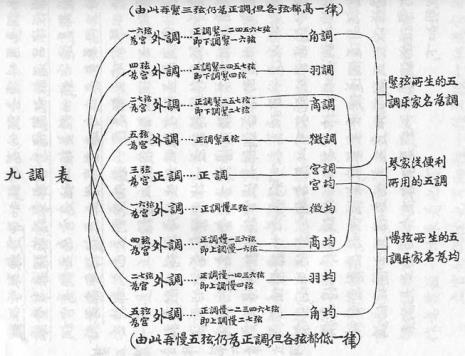 (由此再緊三弦仍為正調但各弦都高一律)
九調表
一六弦為宮 外調…正調緊一二四五六七弦 即下調緊一六弦 角調
四弦為宮 外調…正調緊二四五七弦 即下調緊四弦 羽調
二七弦為宮 外調…正調緊二五七弦 即下調緊二七弦 商調
五弦為宮 外調…正調緊五弦 徵調
三弦為宮 正調…正調 宮調
宮均
一六弦為宮 外調…正調慢三弦 徵均
四弦為宮 外調…正調慢一三六弦 即上調慢一六弦 商均
二七弦為宮 外調…正調慢一四三六弦 即上調慢四弦 羽均
五弦為宮 外調…正調慢一二三四六七弦 即上調慢二七弦 角均
緊弦所生的五調琴家名為調
琴家從便利所用的五調
慢弦所生的五調琴家名為均
(由此再慢五弦仍為正調但各弦都低一律)